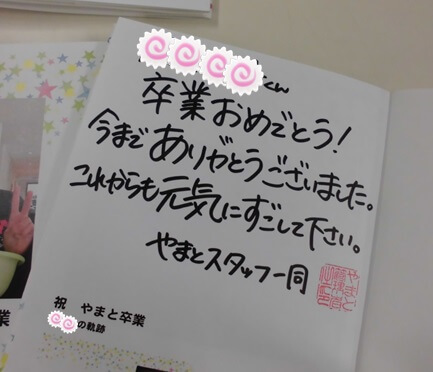 卒業おめでとう!
今までありがとうございました。
これからも元気にすごして下さい。
やまとスタッフ一同
祝 やまと卒業
の軌跡
業